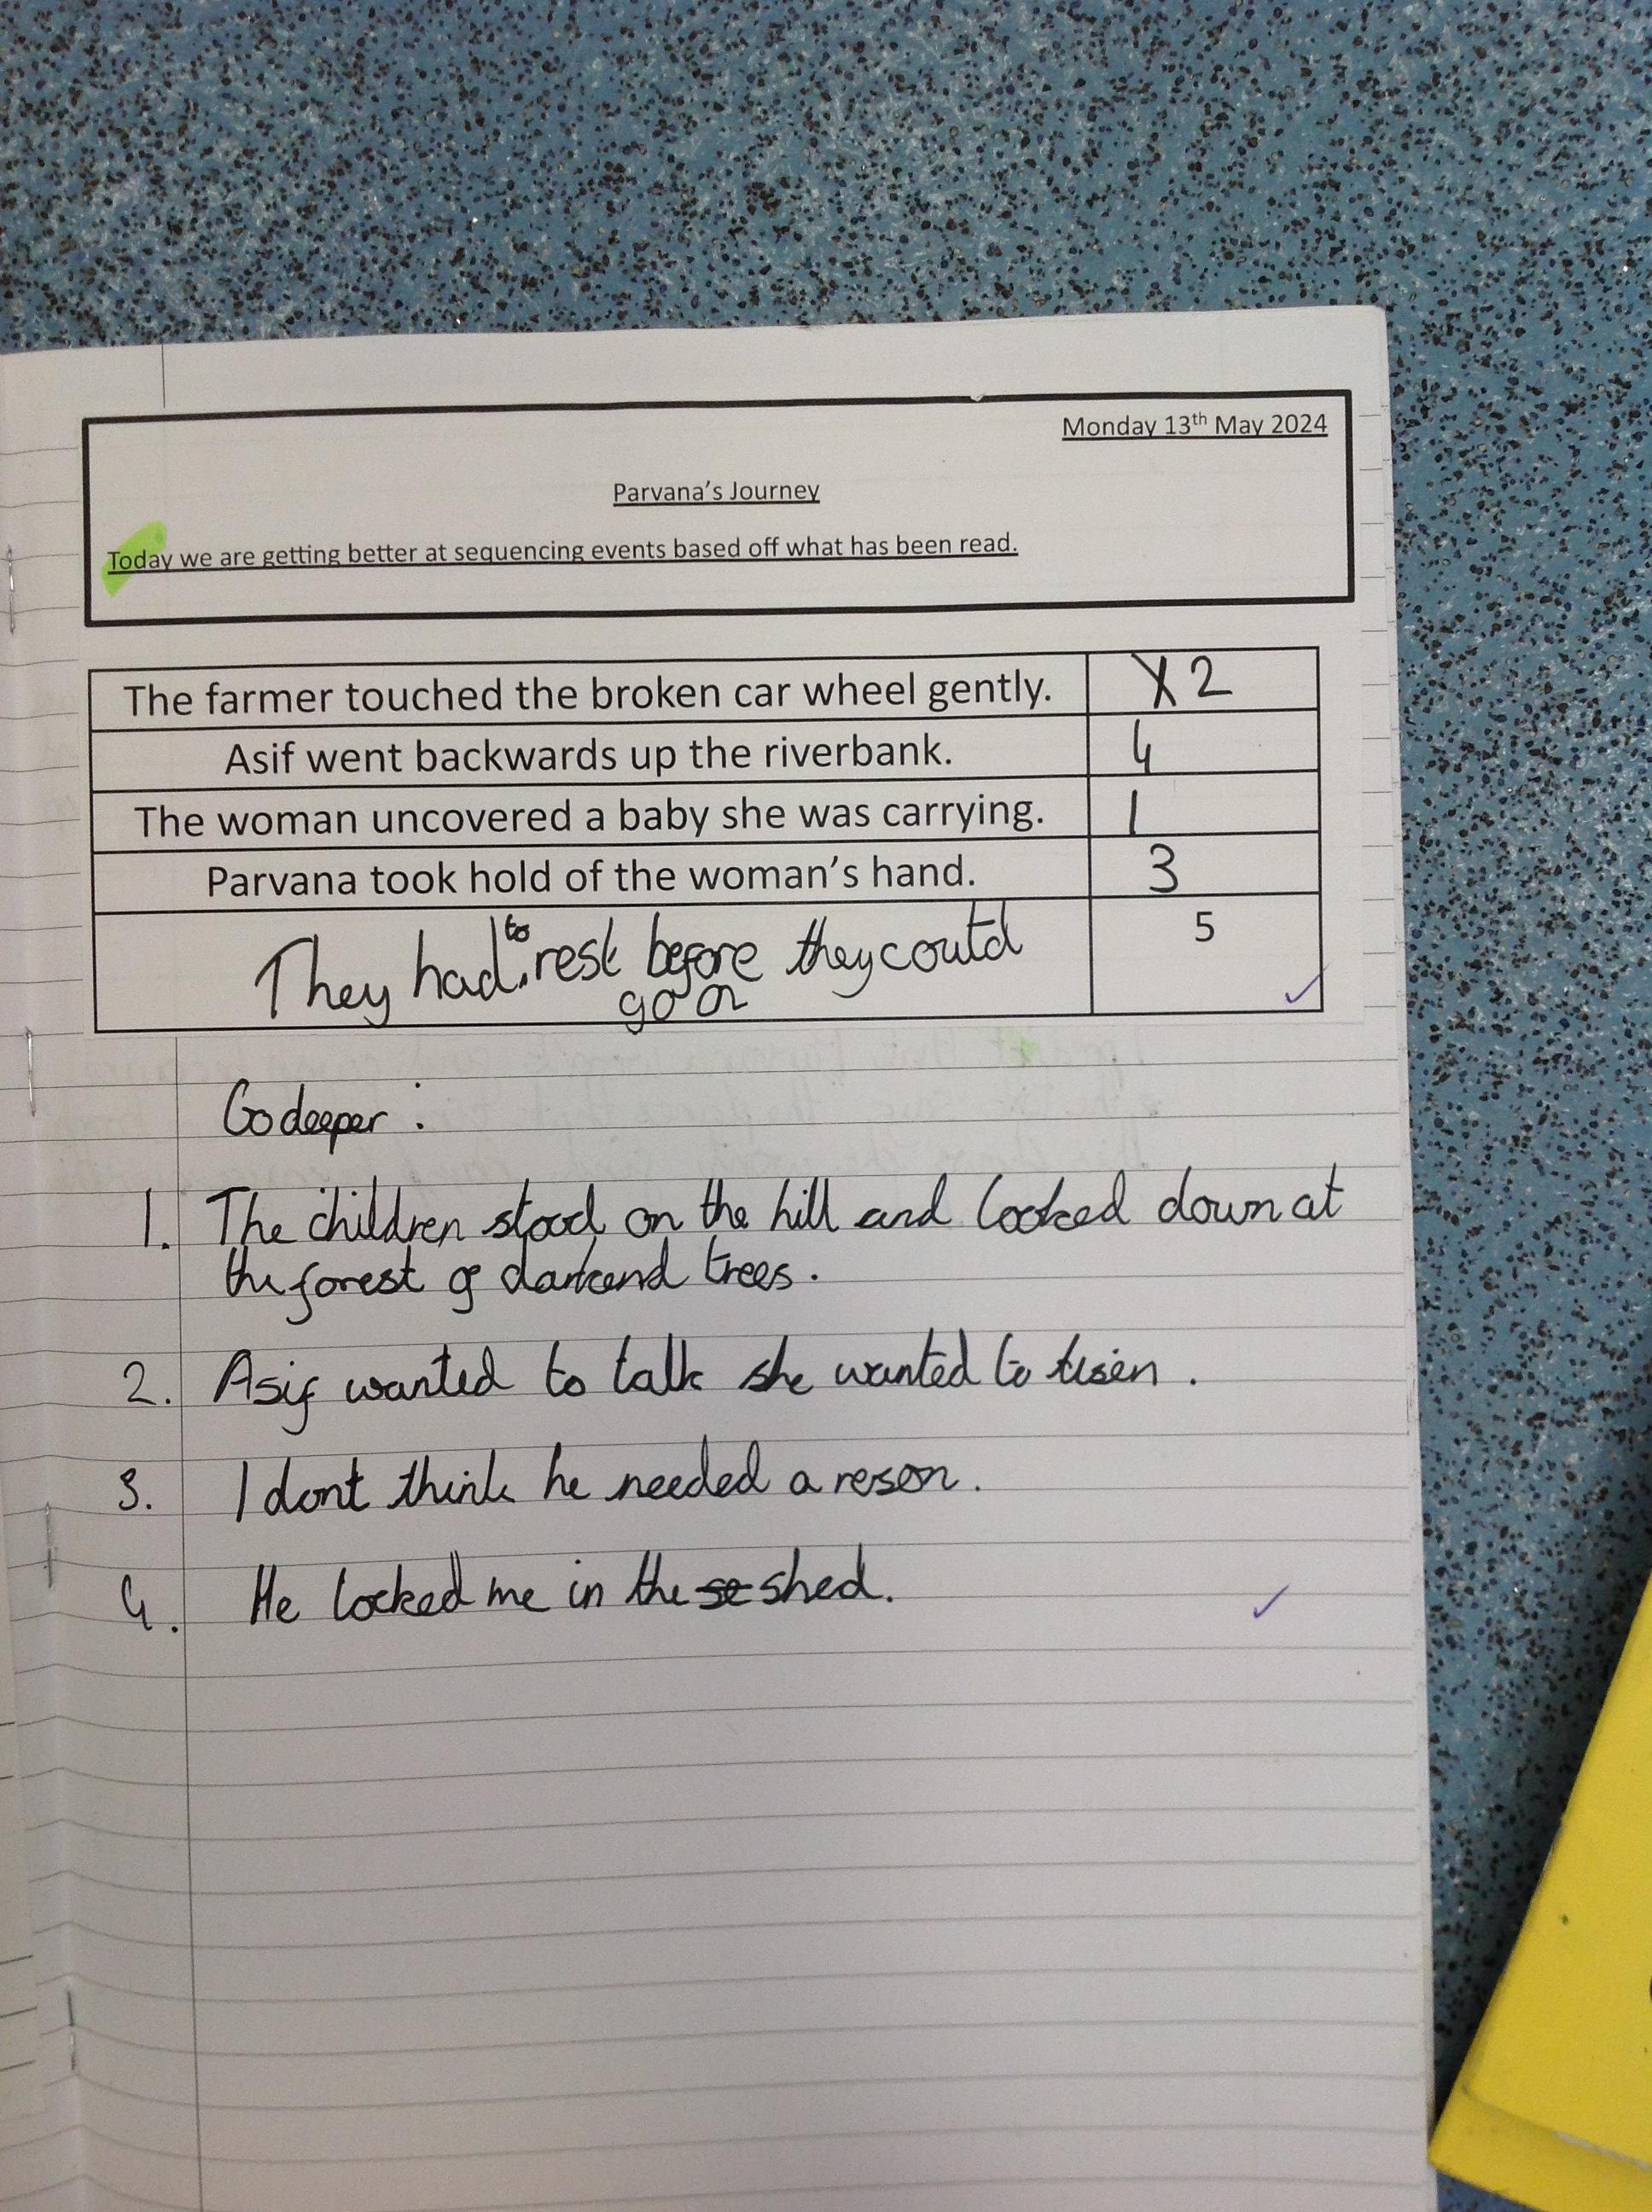 Monday 13th May 2024
Parvana's Journey
Today we are getting better at sequencing events based off what has been read.
The farmer touched the broken car wheel gently. X 2
Asif went backwards up the riverbank. 4
The woman uncovered a baby she was carrying. 1
Parvana took hold of the woman's hand. 3
They had to rest before they could 5
go on
Go deeper :
1. The children stood on the hill and looked down at
the forest of darkend trees.
2. Asif wanted to talk she wanted to lisen.
3. I dont think he needed a reson.
4. He locked me in the se shed.